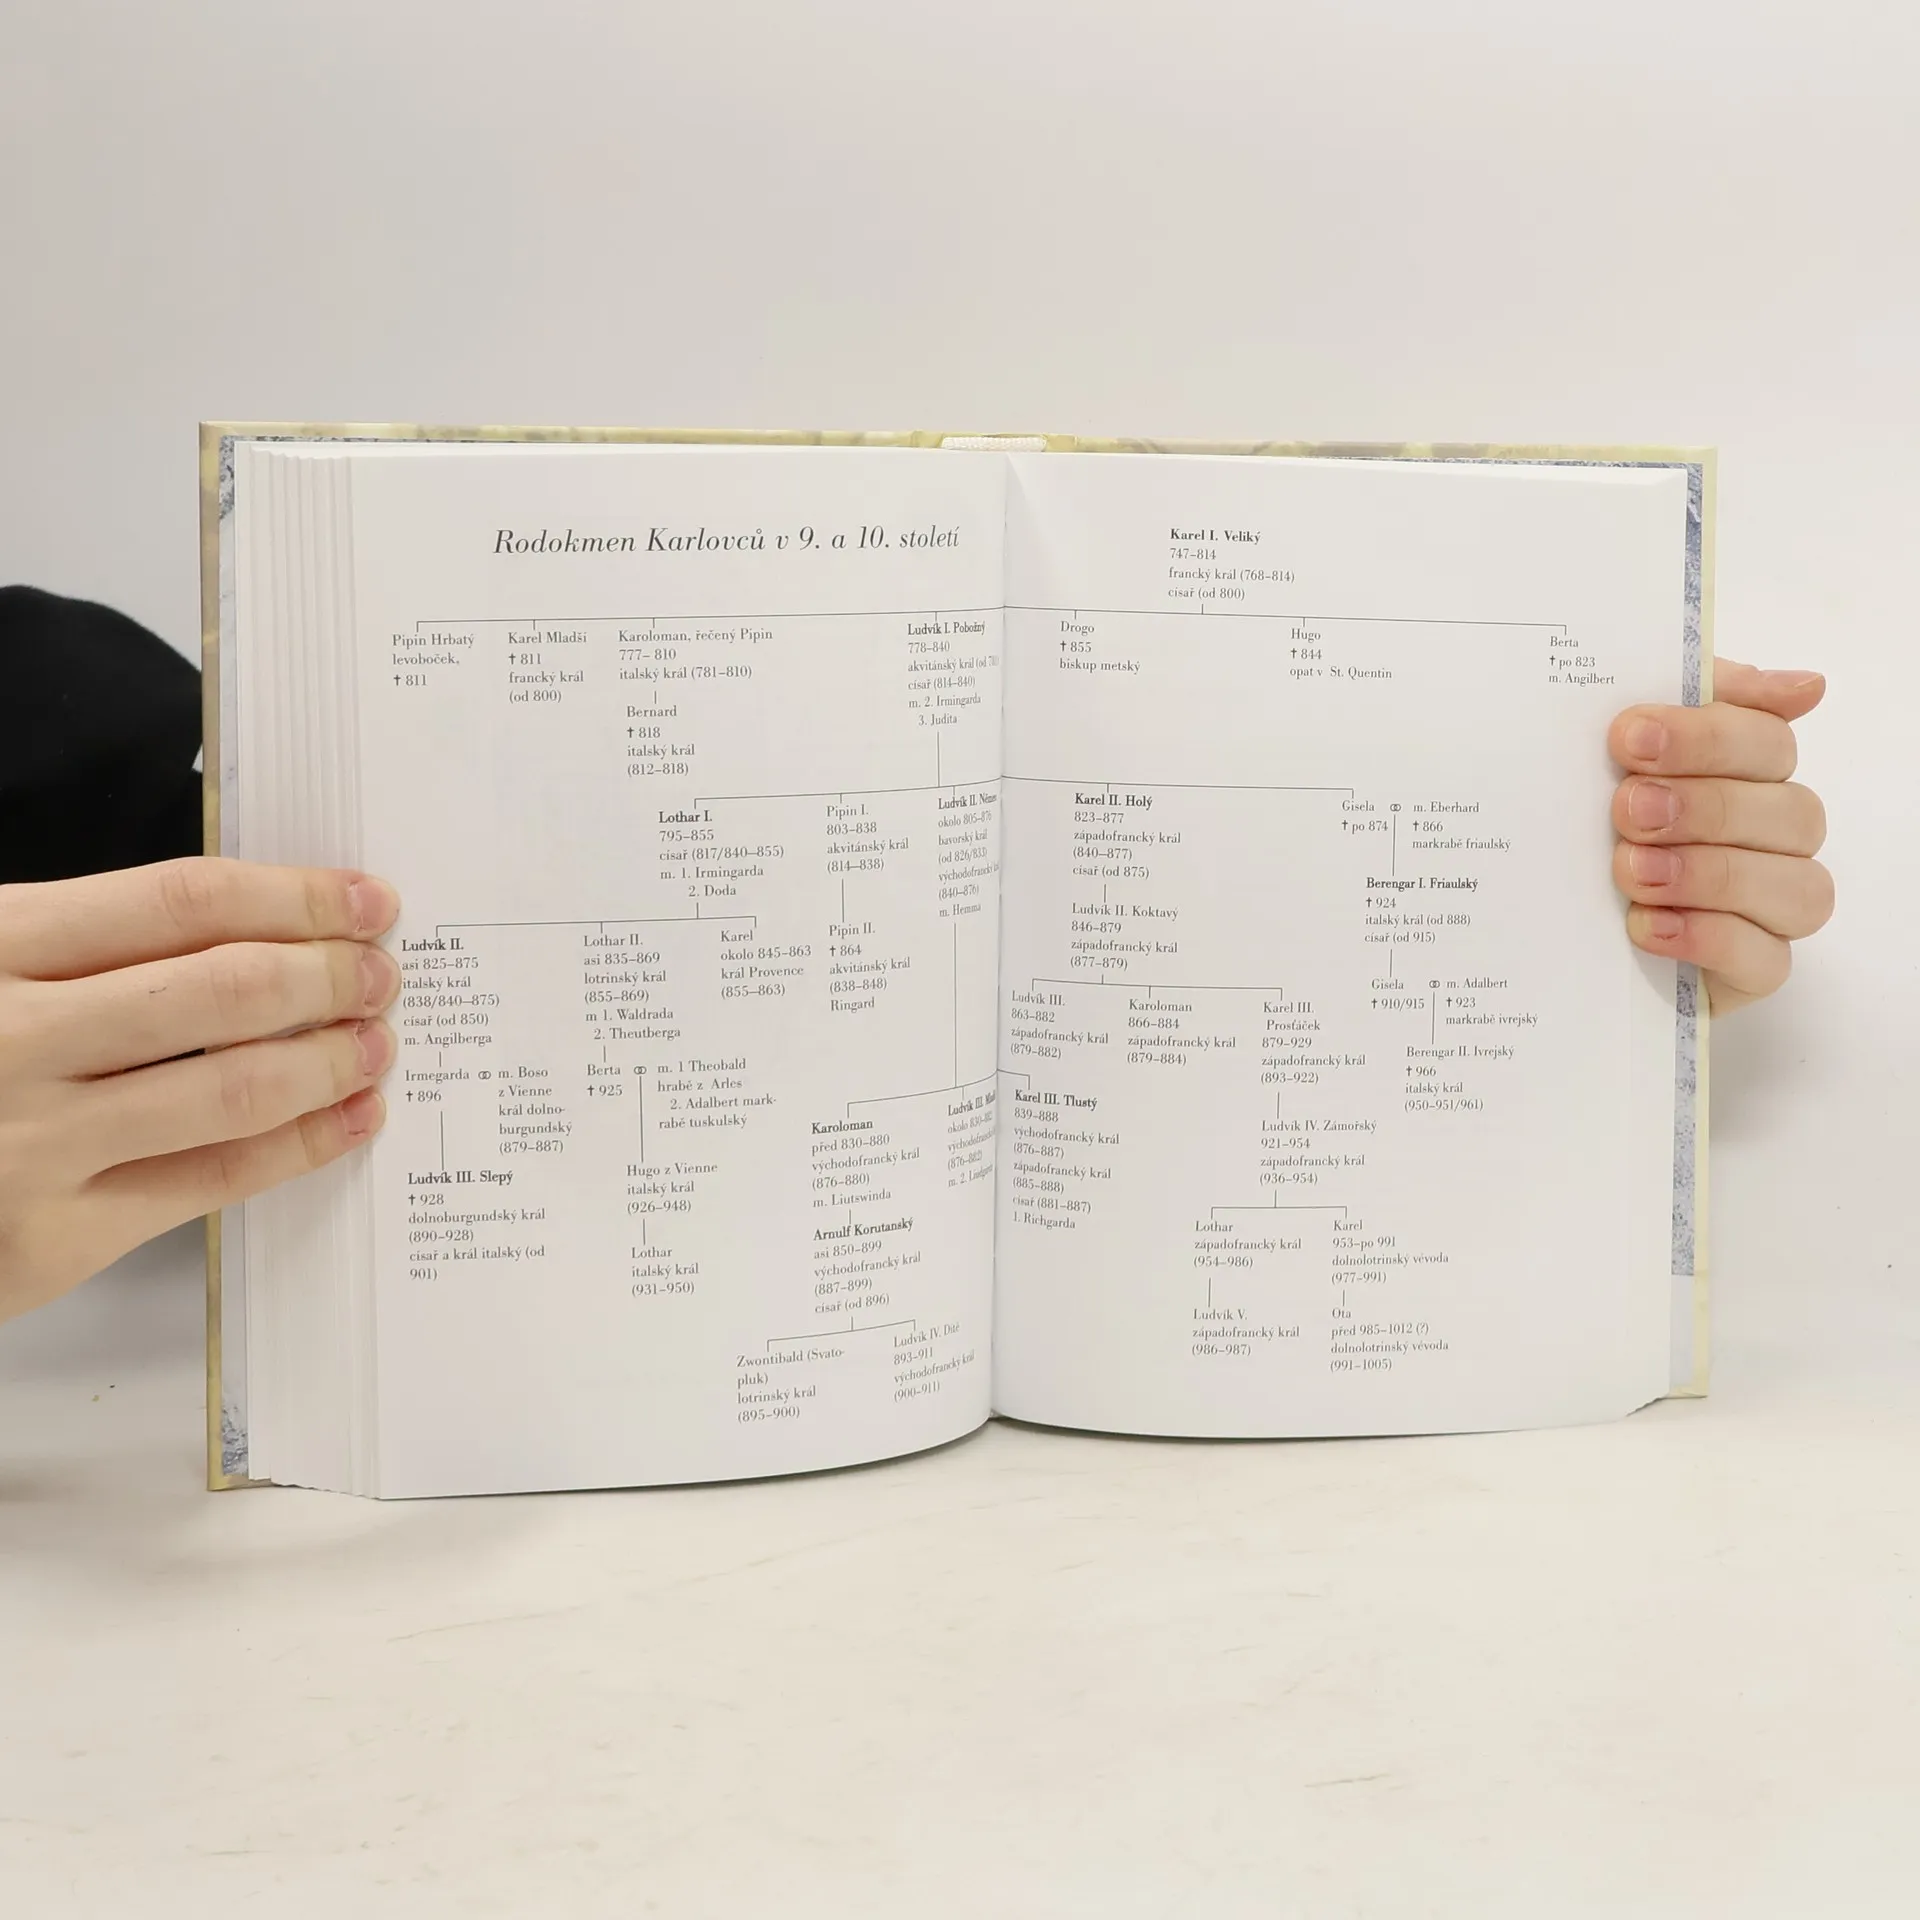 Rodokmen Karlovců v 9. a 10. století
Pipin Hrbatý
levoboček,
† 811
Karel Mladší
† 811
francký král
(od 800)
Karoloman, řečený Pipin
777– 810
italský král (781–810)
Bernard
† 818
italský král
(812–818)
Ludvík I. Pobožný
778–840
akvitánský král (od
císař (814–840)
m. 2. Irmingarda
3. Judita
Lothar I.
795–855
císař (817/840–855)
m. 1. Irmingarda
2. Doda
Pipin I.
803–838
akvitánský král
(814–838)
Ludvík II.
okolo 805–876
bavorský král
(od 826/833)
(840–876)
m. Hemma
Ludvík II.
asi 825–875
italský král
(838/840–875)
císař (od 850)
m. Angilberga
Lothar II.
asi 835–869
lotrinský král
(855–869)
m 1. Waldrada
2. Theutberga
Karel
okolo 845–863
král Provence
(855–863)
Pipin II.
† 864
akvitánský král
(838–848)
Ringard
Irmegarda ⚭ m. Boso
† 896
z Vienne
král dolno-
burgundský
(879–887)
Berta ⚭ m. 1 Theobald
† 925
hrabě z Arles
2. Adalbert mark-
rabě tuskulský
Ludvík III. Slepý
† 928
dolnoburgundský král
(890–928)
císař a král italský (od
901)
Hugo z Vienne
italský král
(926–948)
Lothar
italský král
(931–950)
Karoloman
před 830–880
východofrancký král
(876–880)
m. Liutswinda
Ludvík III.
okolo 830–882
(876–882)
m. 2.
Arnulf Korutanský
asi 850–899
východofrancký král
(887–899)
císař (od 896)
Zwontibald (Svato-
pluk)
lotrinský král
(895–900)
Ludvík IV. Dítě
893–911
východofrancký král
(900–911)
Karel I. Veliký
747–814
francký král (768–814)
císař (od 800)
Drogo
† 855
biskup metský
Hugo
† 844
opat v St. Quentin
Berta
† po 823
m. Angilbert
Karel II. Holý
823–877
západofrancký král
(840–877)
císař (od 875)
Gisela ⚭ m. Eberhard
† po 874 † 866
markrabě friaulský
Ludvík II. Koktavý
846–879
západofrancký král
(877–879)
Berengar I. Friaulský
† 924
italský král (od 888)
císař (od 915)
Ludvík III.
863–882
západofrancký král
(879–882)
Karoloman
866–884
západofrancký král
(879–884)
Karel III.
Prosťáček
879–929
západofrancký král
(893–922)
Gisela ⚭ m. Adalbert
† 910/915 † 923
markrabě ivrejský
Berengar II. Ivrejský
† 966
italský král
(950–951/961)
Karel III. Tlustý
839–888
východofrancký král
(876–887)
západofrancký král
(885–888)
císař (881–887)
1. Richgarda
Ludvík IV. Zámořský
921–954
západofrancký král
(936–954)
Lothar
západofrancký král
(954–986)
Karel
953–po 991
dolnolotrinský vévoda
(977–991)
Ludvík V.
západofrancký král
(986–987)
Ota
před 985–1012 (?)
dolnolotrinský vévoda
(991–1005)